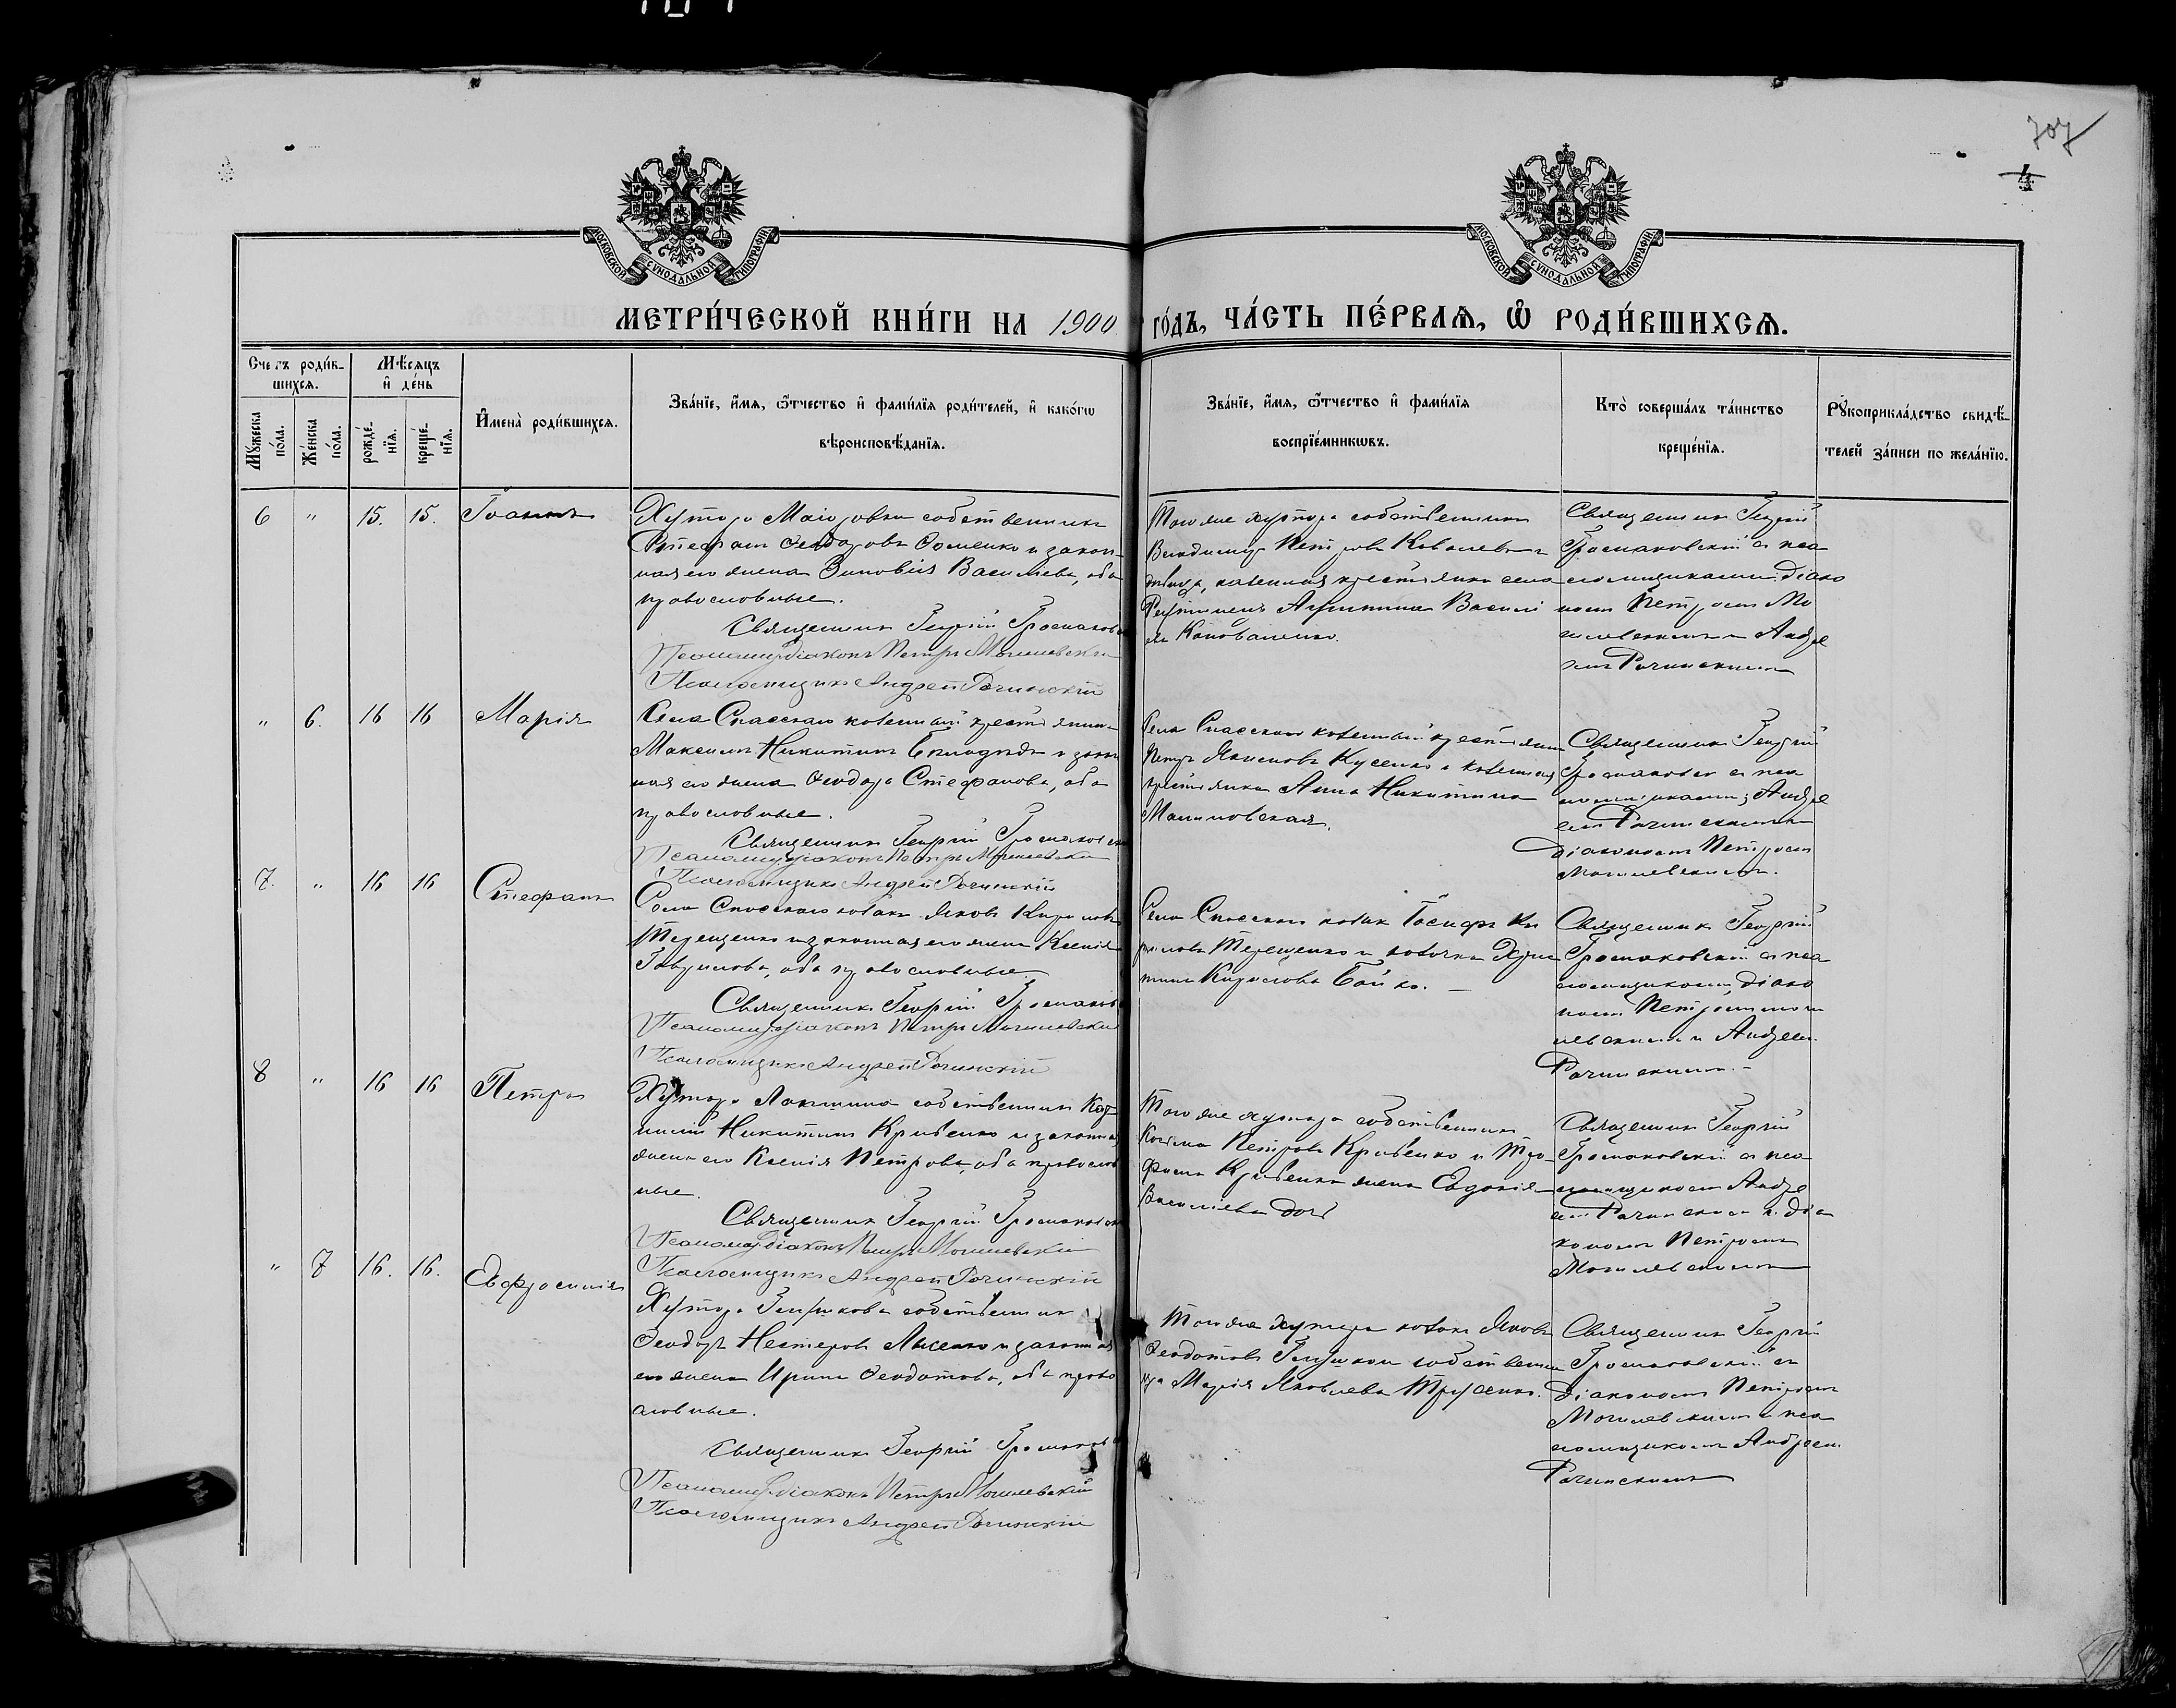 707
4
МОСКОВСКОЙ СѴНОДАЛЬНОЙ ТИПОГРАФІИ
МОСКОВСКОЙ СѴНОДАЛЬНОЙ ТИПОГРАФІИ
МЕТРИ́ЧЕСКОЙ КНИ́ГИ НА 1900 ГО́ДЪ, ЧА́СТЬ ПЕ́РВАѦ, Ѽ РОДИ́ВШИХСѦ.
Счетъ роди́в-
шихсѧ.
Мꙋжеска по́ла.
Же́нска по́ла.
Мѣсѧцъ
и҆ де́нь
рожде́-нїѧ.
креще́-нїѧ.
И҆мена̀ роди́вшихсѧ.
Зва́нїе, и҆́мѧ, ѻ҆́тчество и҆ фами́лїѧ роди́телей, и҆ како́гѡ
вѣроисповѣ́данїѧ.
Зва́нїе, и҆́мѧ, ѻ҆́тчество и҆ фами́лїѧ
воспрїе́мникѡвъ.
Кто̀ соверша́лъ та́инство
креще́нїѧ.
Рꙋкоприкла́дство свидѣ́-
телей за́писи по жела́нїю.
6 " 15. 15. Іоаннъ
Хутора собственникъ
Стефанъ Ѳеодоровъ и закон-
ная его жена Зиновія Васильева, оба
православные.
Священникъ Георгій Громаковск
Псаломщ. діаконъ Петръ Могилевскій
Псаломщикъ Андрей Рачинскій
Того же хутора собственникъ
Владимиръ Петровъ Ковалевъ и
казенная крестьянка села
Василі
ева Коноваленко.
Священникъ Георгій
Громаковскій съ пса
ломщиками: діако
номъ Петромъ Мо
гилевскимъ и Андре
емъ Рачинскимъ
" 6. 16 16 Марія
Села Спасскаго казенный крестьянинъ
Максимъ Никитинъ и закон
ная его жена Ѳеодора Стефанова, оба
православные.
Священникъ Георгій Громаковскій
Псаломщ. діаконъ Петръ Могилевскій
Псаломщикъ Андрей Рачинскій
Села Спасскаго казенный крестьянинъ
Петръ Кусенко и казенная
крестьянка Анна Никитина
Малиновская.
Священникъ Георгій
Громаковск съ пса
ломщиками; Андре
емъ Рачинскимъ и
діакономъ Петромъ
Могилевскимъ.
7. " 16 16 Стефанъ
Села Спасскаго козакъ Яковъ Кириловъ
Терещенко и законная его жена Ксенія
Гавриилова, оба православные.
Священникъ Георгій Громаковск
Псаломщ. діаконъ Петръ Могилевскій
Псаломщикъ Андрей Рачинскій
Села Спасскаго козакъ Іосифъ Ки
риловъ Терещенко и козачка Хрис
тина Кирилова Бойко.
Священникъ Георгій
Громаковскій съ пса
ломщиками, діако
номъ Петромъ Моги
левскимъ и Андреемъ
Рачинскимъ.
8 " 16 16 Петръ
Хутора собственникъ Кор
нилій Никитинъ Кривенко и законная
жена его Ксенія Петрова, оба православ
ные.
Священникъ Георгій Громаковскій
Псаломщ. діаконъ Петръ Могилевскій
Псаломщикъ Андрей Рачинскій
Того же хутора собственникъ
Косьма Петровъ Кривенко и Тро-
фима Кривенка жена Евдокія
Василіева
Священникъ Георгій
Громаковскій съ пса
ломщикомъ Андре
емъ Рачинскимъ и діа
кономъ Петромъ
Могилевскимъ
" 7 16. 16. Евфросинія
Хутора собственникъ
Ѳеодоръ Нестеровъ Лысенко и законная
его жена Ирина Ѳеодотова, оба право
славные.
Священникъ Георгій Громаковс
Псаломщ. діаконъ Петръ Могилевскій
Псаломщикъ Андрей Рачинскій
Того же хутора козакъ Яковъ
Ѳеодотовъ собственни
ца Марія Яковлева
Священникъ Георгій
Громаковскій съ
діакономъ Петромъ
Могилевскимъ и пса
ломщикомъ Андреемъ
Рачинскимъ